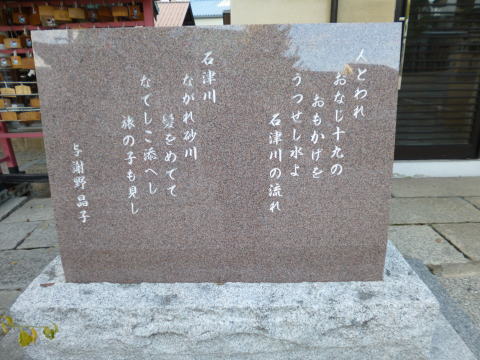 人とわれ
おなじ十九の
おもかげを
うつせし水よ
石津川の流れ
石津川
ながれ砂川
髪をめでて
なでしこ添へし
旅の子も見し
与謝野晶子